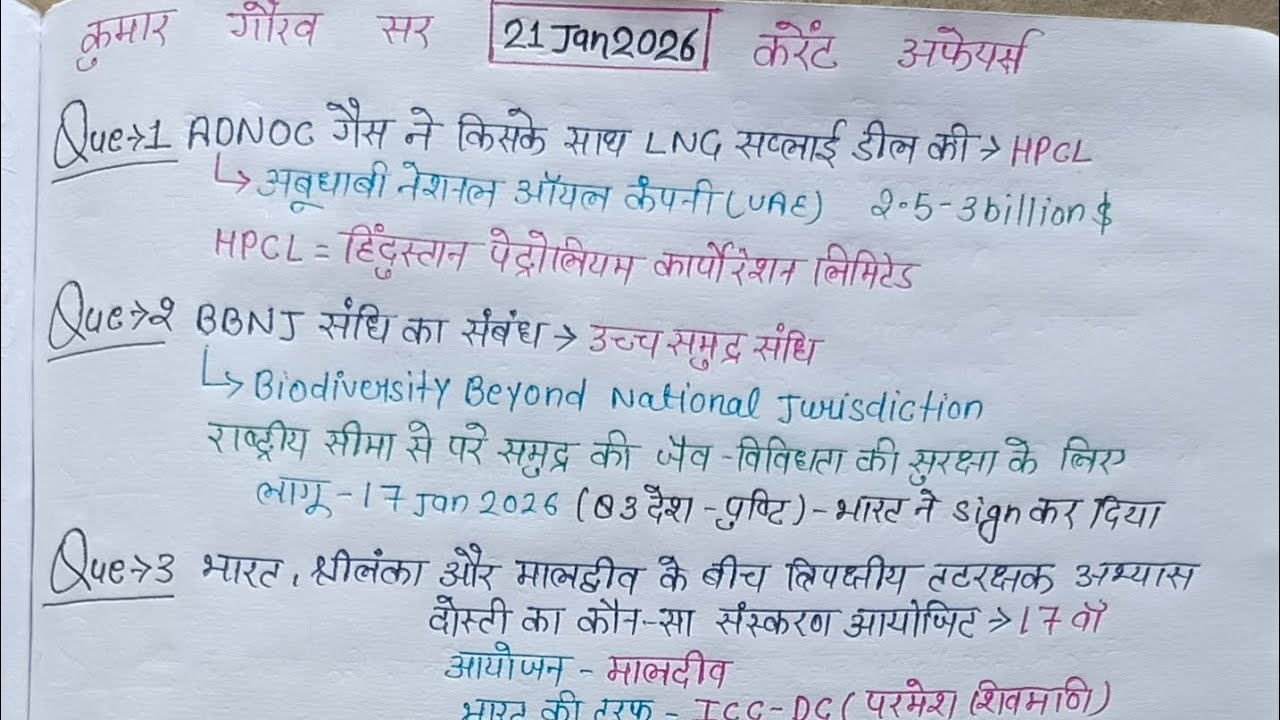 कुमार गौरव सर 21 Jan 2026 करेंट अफेयर्स
Que→1 ADNOC गैस ने किसके साथ LNG सप्लाई डील की → HPCL
↳ अबूधाबी नेशनल ऑयल कंपनी (UAE) 2.5-3 billion $
HPCL = हिंदुस्तान पेट्रोलियम कार्पोरेशन लिमिटेड
Que→2 BBNJ संधि का संबंध → उच्च समुद्र संधि
↳ Biodiversity Beyond National Jurisdiction
राष्ट्रीय सीमा से परे समुद्र की जैव-विविधता की सुरक्षा के लिए
लागू - 17 Jan 2026 (83 देश - पुष्टि) - भारत ने sign कर दिया
Que→3 भारत, श्रीलंका और मालद्वीव के बीच त्रिपक्षीय तटरक्षक अभ्यास
दोस्ती का कौन-सा संस्करण आयोजित → 17 वाँ
आयोजन - मालदीव
भारत की तरफ - ICG-DG (परमेश शिवमणि)